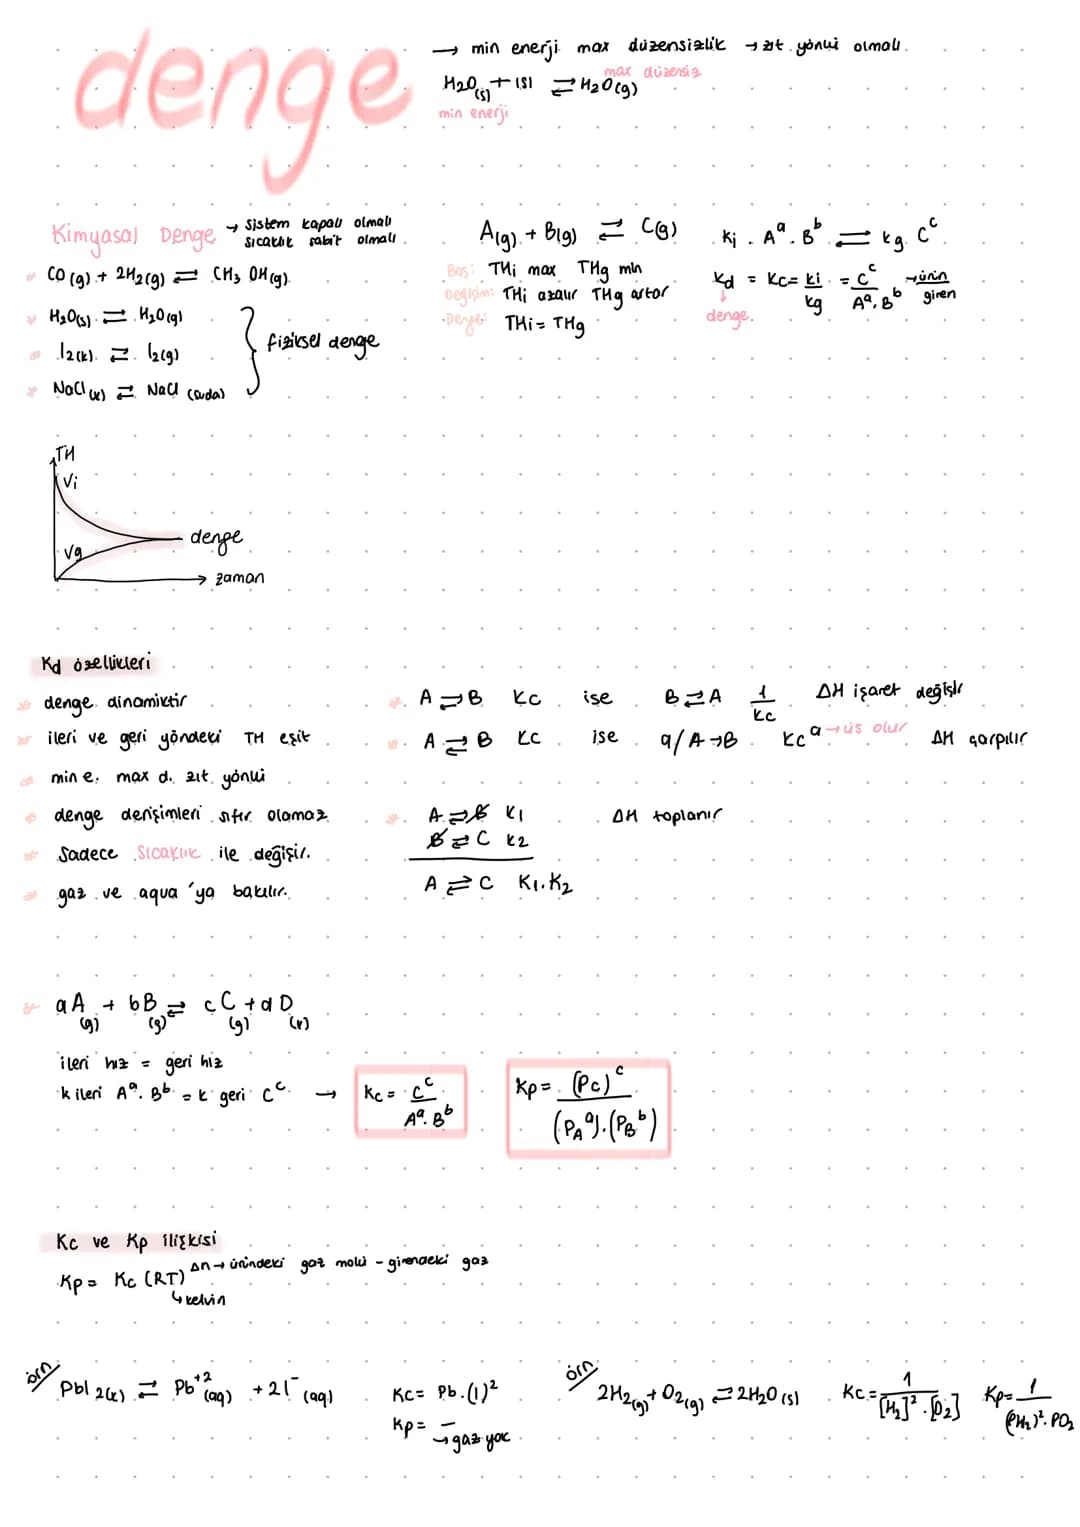 denge
→ min enerji max düzensizlik → zıt yönlü olmalı.
H₂O(s) + ısı ⇌ H₂O(g)
max düzensiz
min enerji
Kimyasal Denge → sistem kapalı olmalı
sıcaklık sabit olmalı
CO(g) + 2H₂(g) ⇌ CH₃OH(g)
H₂O(s) ⇌ H₂O(g)
I₂(k) ⇌ I₂(g)
NaCl(k) ⇌ NaCl(suda)
fiziksel denge
A(g) + B(g) ⇌ C(g)
Baş: THi max THg min
Değişim: THi azalır THg artar
Denge: THi = THg
ki . Aᵃ . Bᵇ ⇌ kg . Cᶜ
Kd = Kc = ki/kg = Cᶜ/Aᵃ.Bᵇ → ürün
giren
↓
denge.
TH
Vi
Vg
denge
zaman
Kd özellikleri
denge dinamiktir
ileri ve geri yöndeki TH eşit
min e. max d. zıt yönlü
denge derişimleri sıfır olamaz
Sadece sıcaklık ile değişir.
gaz ve aqua'ya bakılır.
A ⇌ B Kc ise B ⇌ A 1/Kc ΔH işaret değişir
A ⇌ B Kc ise a/A → B Kcᵃ → üs olur ΔH çarpılır
A ⇌ B K1 ΔH toplanır
B ⇌ C K2
A ⇌ C K1.K2
aA(g) + bB(g) ⇌ cC(g) + dD(k)
ileri hız = geri hız
k ileri Aᵃ. Bᵇ = k geri Cᶜ →
Kc = Cᶜ/Aᵃ.Bᵇ
Kp = (Pc)ᶜ/(P_Aᵃ).(P_Bᵇ)
Kc ve Kp ilişkisi
Kp = Kc (RT)^Δn → üründeki gaz molü - girendeki gaz
↳ kelvin
örn
PbI₂(k) ⇌ Pb⁺²(aq) + 2I⁻(aq)
Kc = Pb.(I)²
Kp = —
→ gaz yok
örn
2H₂(g) + O₂(g) ⇌ 2H₂O(s)
Kc = 1/[H₂]².[O₂]
Kp = 1/(PH₂)².PO₂